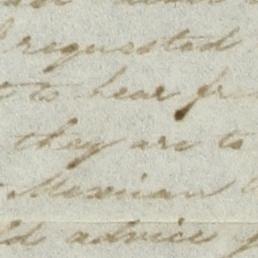 requested
to hear
they are to
Mexican
advice